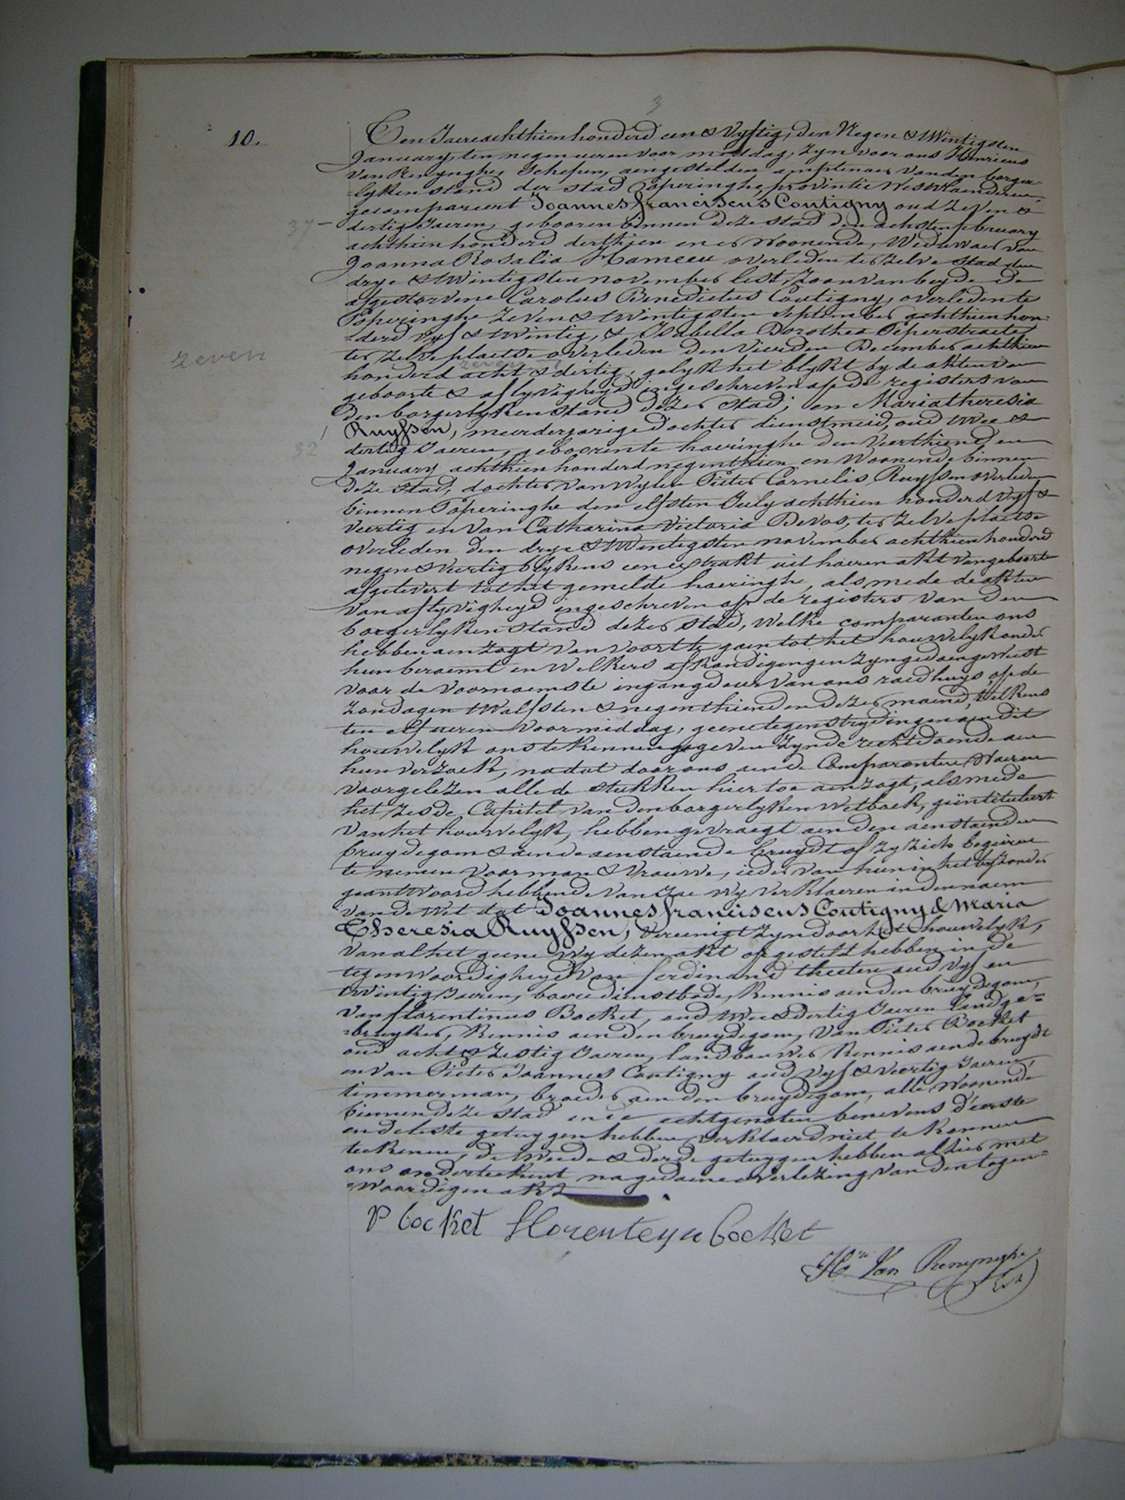 3
10.
Ten Jaere achthien honderd een & vyftig, den Negen & twintigsten
January, ten negen ueren voor middag, zyn voor ons Henricus
Van Renynghe, Schepen, aengestelden amptenaer van den borger-
lyken stand der stad Poperinghe, provintie Westvlaenderen
gecompareert Joannes franciscus Coutigny oud zeven &
37 - dertig Jaeren, gebooren binnen deze stad den achsten february
achthien honderd derthien en er woonende, Weduwaer van
Joanna Rosalia Hameeu overleden ter zelve stad den
drye & twintigsten november lest, zoon van beyde de
afgestorvene Carolus Benedictus Coutigny, overleden te
Poperinghe zeven & twintigsten september achthien hon-
derd vyf & twintig, & Isabella Dorothea Peperstraete
ter zelve plaetse overleden den vierden December achthien
zeven
honderd acht & dertig, gelyk het blykt by de akten van
geboorte & aflyvigheyd ingeschreven op de registers van
den borgerlyken stand dezer stad; en Maria theresia
Ruyssen, meerderjarige dochter dienstmeid, oud twee &
32 dertig Jaeren, geboren te haeringhe den veerthienden
January achthien honderd negenthien en woonende binnen
deze stad, dochter van wylen Pieter Cornelis Ruyssen overleden
binnen Poperinghe den elfsten July achthien honderd vyf &
veertig en van Catharina Victoria Devos, ter zelve plaetse
overleden den drye & twintigsten november achthien honderd
negen & veertig blykens een extrakt uit haeren akt van geboorte
afgelevert tot het gemelde haeringhe, als mede de akten
van aflyvigheyd ingeschreven op de registers van den
borgerlyken stand dezer stad, welke comparanten ons
hebben aenzogt van voorts te gaen tot het houwelyk onder
hun beraemt en welkers afkondigingen zyn gedaen geweest
voor de voornaemste ingangdeur van ons raedhuys op de
zondagen twalfsten & negenthienden dezer maend, telkens
ten elf ueren voor middag, geene tegenstrydingen aen dit
houwelyk ons te kennen gegeven zynde rechtdoende aen
hun verzoek, na dat door ons aen de Comparanten waeren
voorgelezen alle de stukken hier toe aenzogt, als mede
het zesde Capitel van den borgerlyken Wetboek, geïntituleert
van het houwelyk, hebben gevraegt aen den aenstaenden
bruydegom & aen de aenstaende bruydt of zy zich begeiren
te nemen voor man & vrouwe, ieder van hun in het byzonder
geantwoord hebbende van Jae wy verklaeren in den naem
van de Wet dat Joannes franciscus Coutigny & Maria
Theresia Ruyssen, vereenigt zyn door het houwelyk,
van al het geene wy dezen akt opgesteld hebben in de
tegenwoordigheyd van ferdinand theeten oud vyf en
twintig Jaeren, bouwdienstbode, Kennis aen den bruydegom,
van florentinus Bocket, oud twee & dertig Jaeren Landge-
bruyker, Kennis aen den bruydegom, van Pieter Bocket
oud acht & zestig Jaeren, landbouwer Kennis aen de bruydt
en van Pieter Joannes Coutigny oud vyf & veertig Jaeren,
timmerman, broeder aen den bruydegom, alle woonende
binnen deze stad en de echtgenoten benevens d'eerste
en de leste getuygen hebben verklaerd niet te konnen
teekenen, de tweede & derde getuygen hebben alhier met
ons onderteekent na gedaene overlezing van den tegen-
woordigen akt
P bocket florenteyn bocket
H.ri Van Renynghe